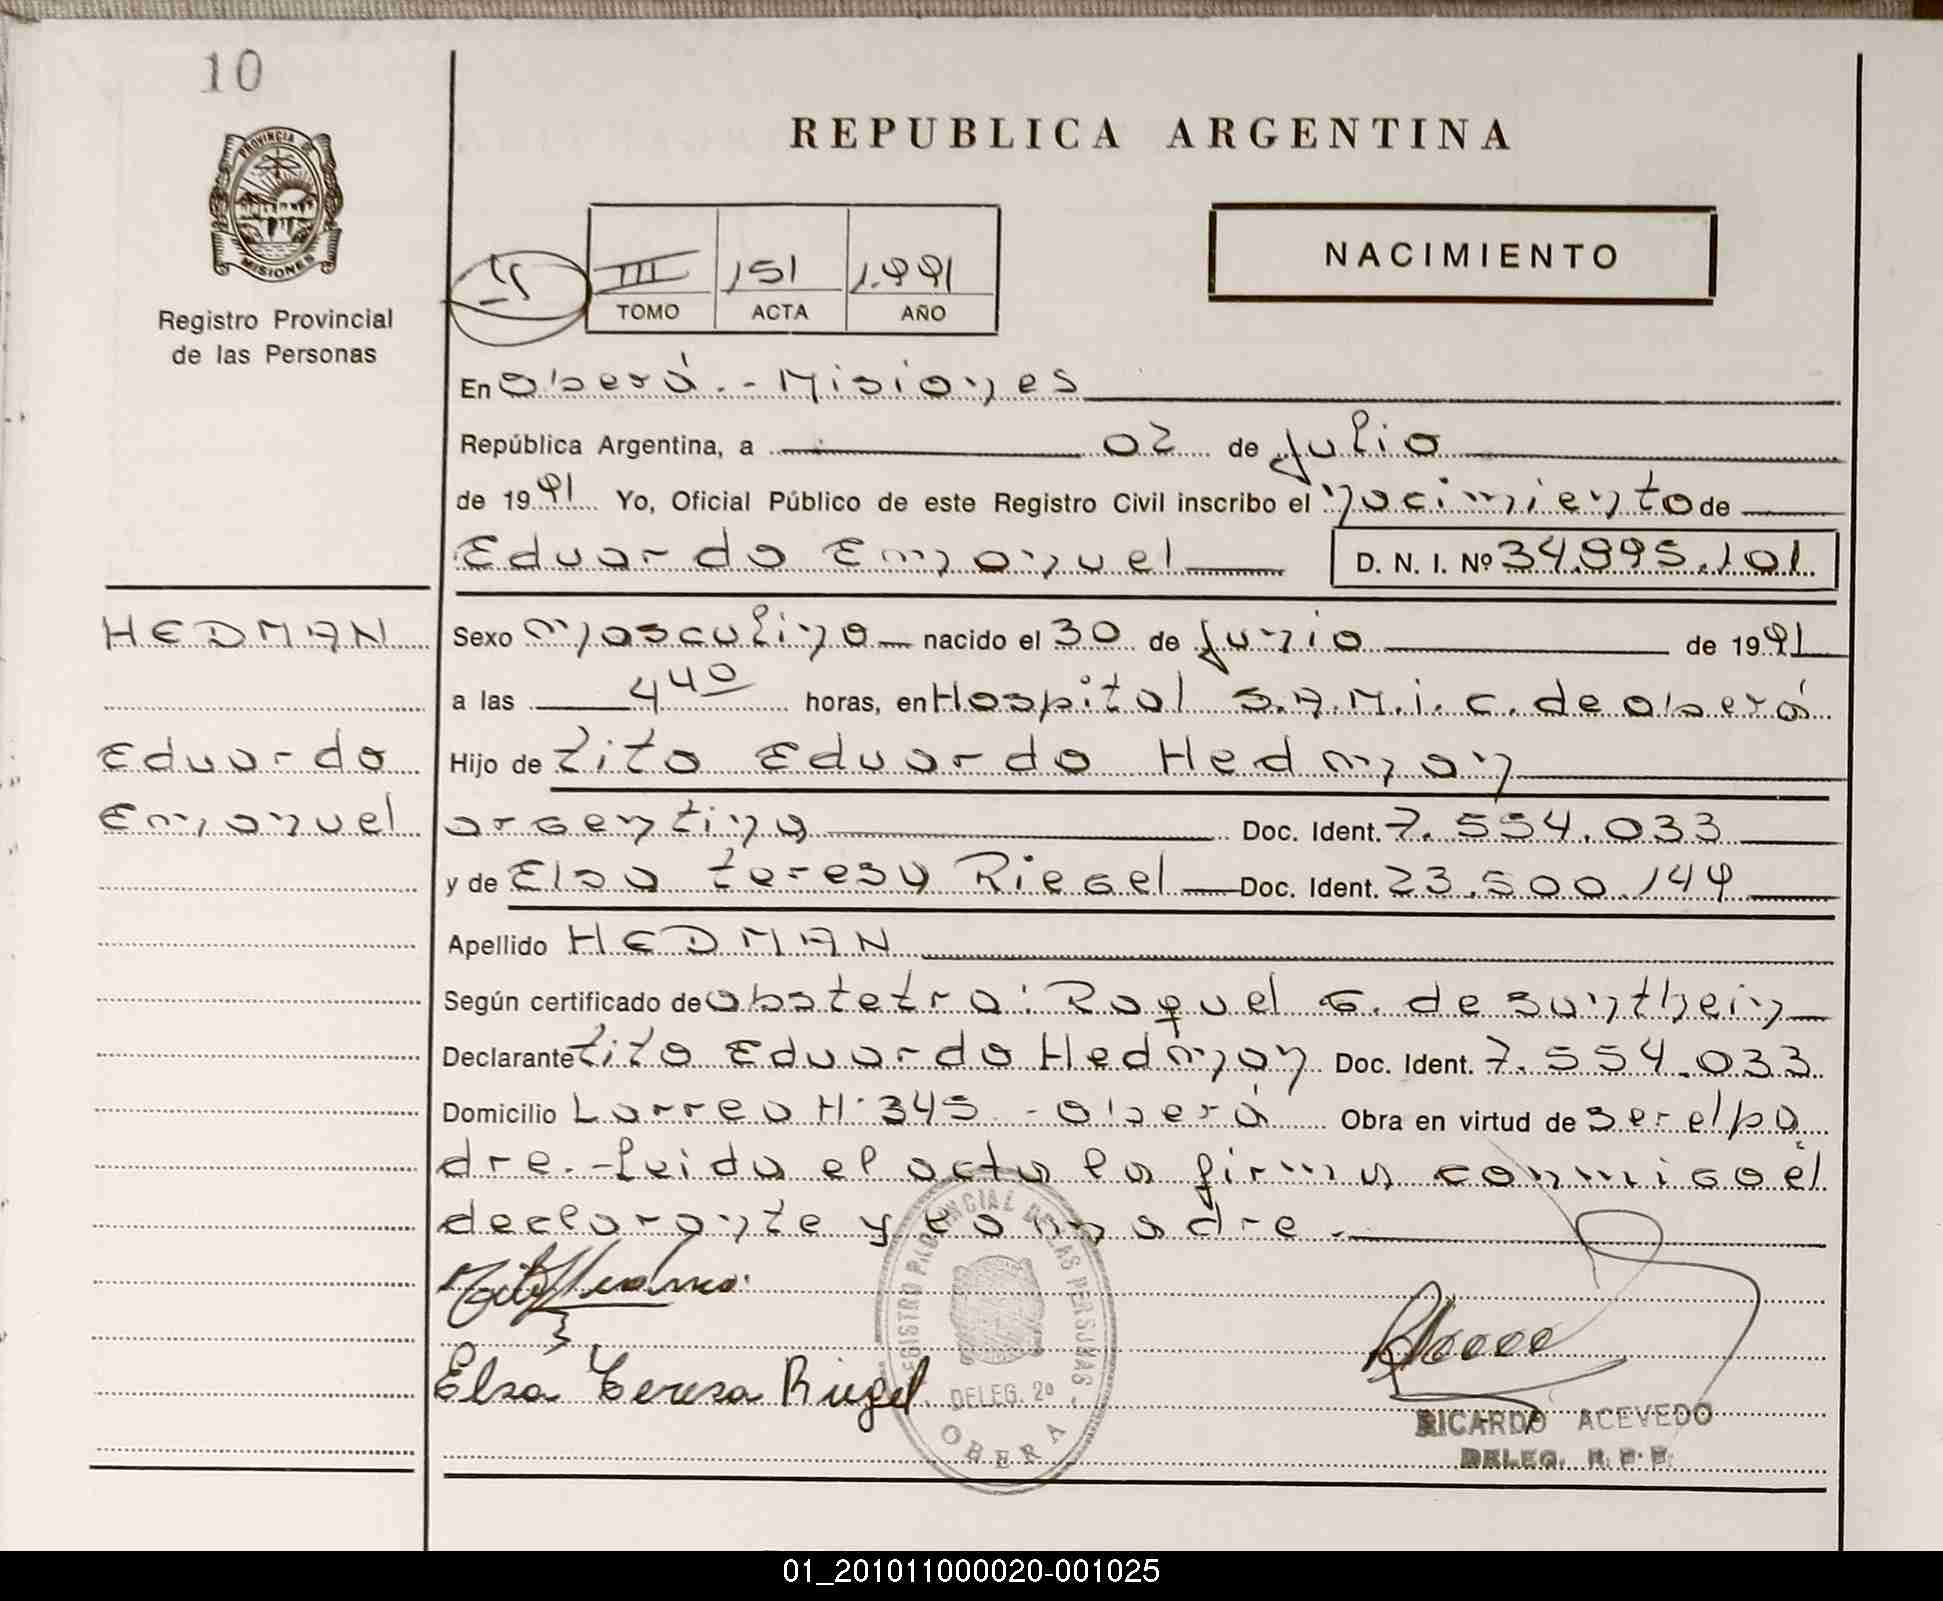 10
PROVINCIA DE
MISIONES
Registro Provincial
de las Personas
REPUBLICA ARGENTINA
NACIMIENTO
III 151 1.991
TOMO ACTA AÑO
En Oberá.- Misiones
República Argentina, a 02 de Julio
de 1991 Yo, Oficial Público de este Registro Civil inscribo el nacimiento de
Eduardo Emanuel D. N. I. Nº 34.995.101
HEDMAN
Eduardo
Emanuel
Sexo masculino nacido el 30 de Junio de 1991
a las 4 40 horas, en Hospital S.A.M.i.C. de Oberá
Hijo de Tito Eduardo Hedman
argentino Doc. Ident. 7.554.033
y de Elsa Teresa Riegel Doc. Ident. 23.500.144
Apellido HEDMAN
Según certificado de obstetra: Raquel G. de Sunthein
Declarante Tito Eduardo Hedman Doc. Ident. 7.554.033
Domicilio Larrea N: 345 - Oberá Obra en virtud de ser el pa
dre.- Leida el acta la firma conmigo el
declarante y la madre.
Elsa Teresa Riegel
REGISTRO PROVINCIAL DE LAS PERSONAS
DELEG. 2º
OBERA
RICARDO ACEVEDO
DELEG. R. P. P.
01_201011000020-001025